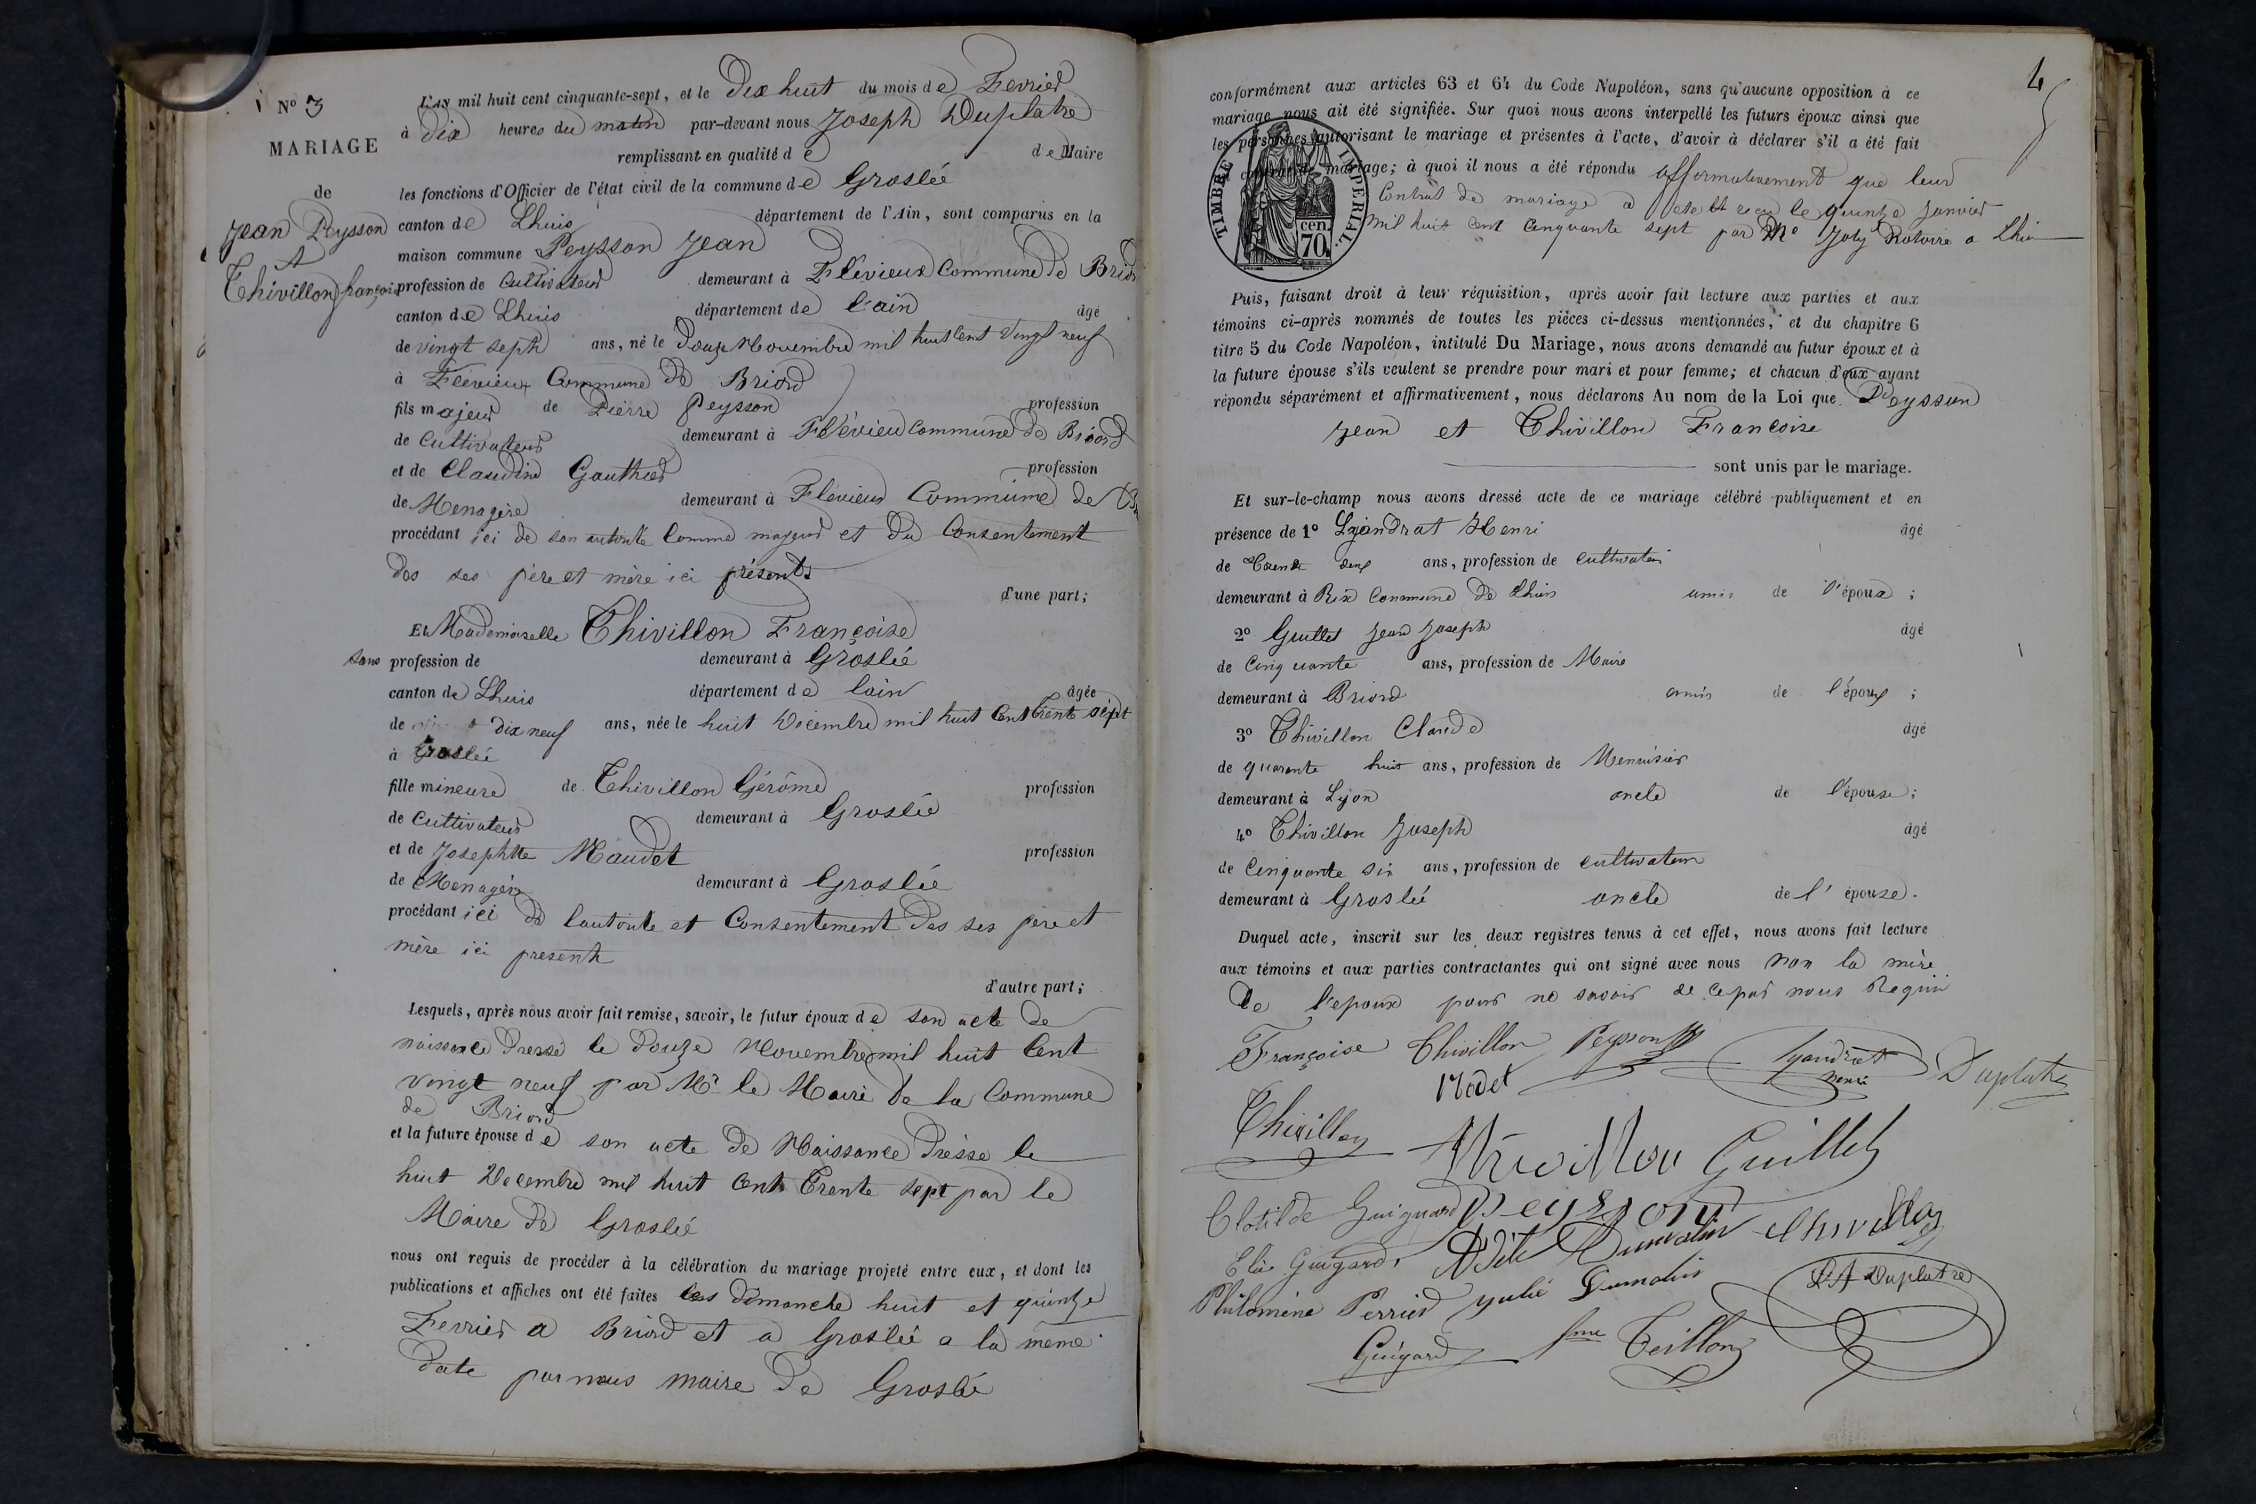 N° 3
MARIAGE
de
Jean Peysson
et
Thivillon françoise
L'AN mil huit cent cinquante-sept, et le Dix huit du mois de Fevrier
à Dix heures du matin par-devant nous Joseph Duplatre
remplissant en qualité de de Maire
les fonctions d'Officier de l'état civil de la commune de Groslée
canton de Lhuis département de l'Ain, sont comparus en la
maison commune Peysson Jean
profession de Cultivateur demeurant à Flévieux Commune de Briord
canton de Lhuis département de l'ain âgé
de vingt sept ans, né le Douze Novembre mil huit Cent Vingt neuf
à Flévieux Commune de Briord
fils majeur de Pierre Peysson profession
de Cultivateur demeurant à Flévieu Commune de Briord
et de Claudine Gauthier profession
de Menagère demeurant à Flévieux Commune de
procédant ici de son autorité Comme majeur et du Consentement
des ses père et mère ici présents
d'une part;
Et Mademoiselle Thivillon Françoise
sans profession de demeurant à Groslée
canton de Lhuis département de lain âgée
de dix neuf ans, née le huit Décembre mil huit Cent trente sept
à Groslée
fille mineure de Thivillon Gérôme profession
de Cultivateur demeurant à Groslée
et de Josephtte Maudet profession
de Menagère demeurant à Groslée
procédant ici de l'autorité et Consentement des ses père et
mère ici present
d'autre part;
Lesquels, après nous avoir fait remise, savoir, le futur époux de son acte de
naissance Dressé le Douze Novembre mil huit Cent
Vingt neuf par Mr le Maire de la Commune
de Briord
et la future épouse de son acte de Naissance Dressé le
huit Decembre mil huit Cent Trente sept par le
Maire de Groslée
nous ont requis de procéder à la célébration du mariage projeté entre eux, et dont les
publications et affiches ont été faites les dimanche huit et quinze
Fevrier a Briord et a Groslée a la même
Date par nous maire de Groslée
4
conformément aux articles 63 et 64 du Code Napoléon, sans qu'aucune opposition à ce
mariage nous ait été signifiée. Sur quoi nous avons interpellé les futurs époux ainsi que
les personnes autorisant le mariage et présentes à l'acte, d'avoir à déclarer s'il a été fait
contrat de mariage; à quoi il nous a été répondu affirmativement que leur
Contrat de mariage a été reçu le quinze Janvier
mil huit Cent Cinquante sept par Me Joly Notaire a Lhuis
TIMBRE IMPERIAL.
cen.
70
Puis, faisant droit à leur réquisition, après avoir fait lecture aux parties et aux
témoins ci-après nommés de toutes les pièces ci-dessus mentionnées, et du chapitre 6
titre 5 du Code Napoléon, intitulé Du Mariage, nous avons demandé au futur époux et à
la future épouse s'ils veulent se prendre pour mari et pour femme; et chacun d'eux ayant
répondu séparément et affirmativement, nous déclarons Au nom de la Loi que Peysson
Jean et Thivillon Françoise
sont unis par le mariage.
Et sur-le-champ nous avons dressé acte de ce mariage célébré publiquement et en
présence de 1° Henri âgé
de Trente deux ans, profession de cultivateur
demeurant à Rix Commune de Lhuis amis de l'époux ;
2° Guillet Jean Joseph âgé
de Cinquante ans, profession de Maire
demeurant à Briord amis de l'époux ;
3° Thivillon Claude âgé
de quarante huit ans, profession de Menuisier
demeurant à Lyon oncle de l'épouse ;
4° Thivillon Joseph âgé
de Cinquante six ans, profession de cultivateur
demeurant à Groslée oncle de l' épouse.
Duquel acte, inscrit sur les deux registres tenus à cet effet, nous avons fait lecture
aux témoins et aux parties contractantes qui ont signé avec nous non la mère
de l'epoux pour ne savoir de ce par nous Requise
Françoise Thivillon Peysson
Henri Duplatre
Modet
Thivillon Thivillon Guillet
Clotilde Guignard Peysson Thivillon
Elie Guigard Adèle Dumolin
Philomène Perrier Julie Dumolin
Guigard Teillon